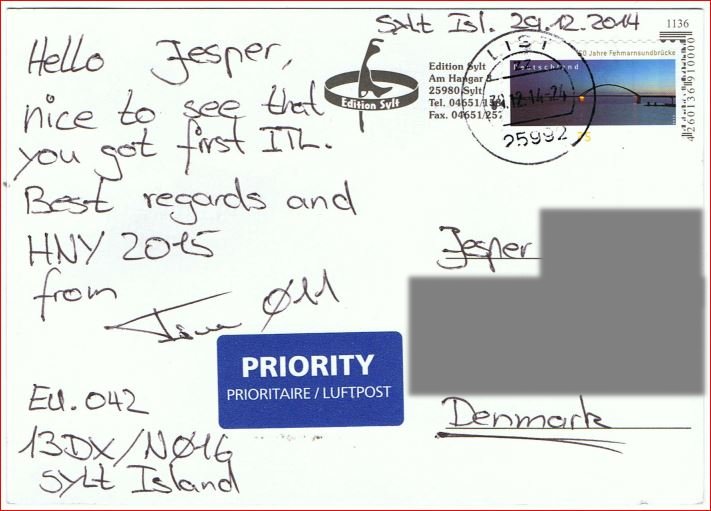 Sylt Isl. 29.12.2014
1136
Hello Jesper,
nice to see that
you got first ITL.
Best regards and
HNY 2015
from
Ø11
EU.042
13DX/NØ1G
Sylt Island
Edition Sylt
Edition Sylt
Am Hangar
25980 Sylt
Tel. 04651/
Fax. 04651/257
50 Jahre Fehmarnsundbrücke
Deutschland
75
LIST
.12.14-24
25992
4260136910000
Jesper
PRIORITY
PRIORITAIRE / LUFTPOST
Denmark